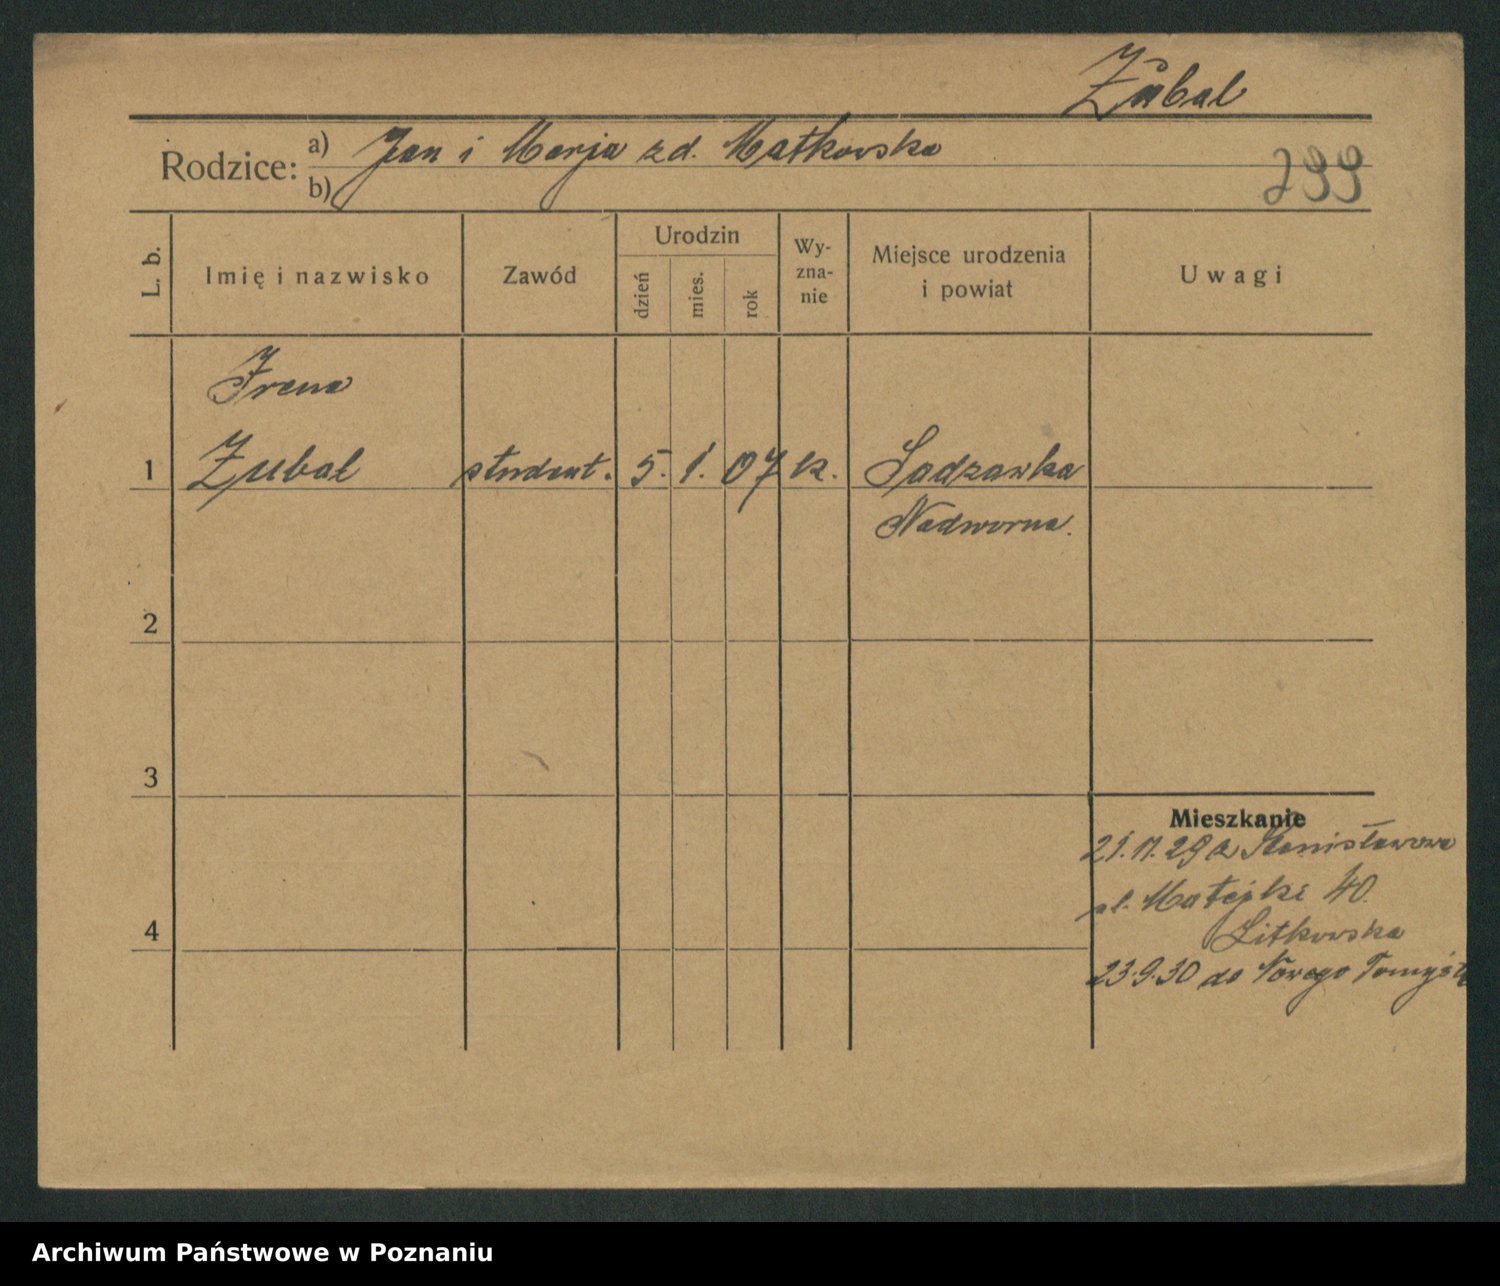 Zubal
Rodzice: a) Jan i Marja zd. Matkowska
b)
299
L. b. Imię i nazwisko Zawód Urodzin dzień mies. rok Wy-zna-nie Miejsce urodzenia i powiat Uwagi
Irena
1 Zubal student. 5. 1. 07 k. Sadzawka
Nadworna.
2
3
Mieszkanie
21.11.29 z Stanisławowa
pl. Matejki 40.
4
Litkowska
23.9.30 do Nowego Tomyśla
Archiwum Państwowe w Poznaniu